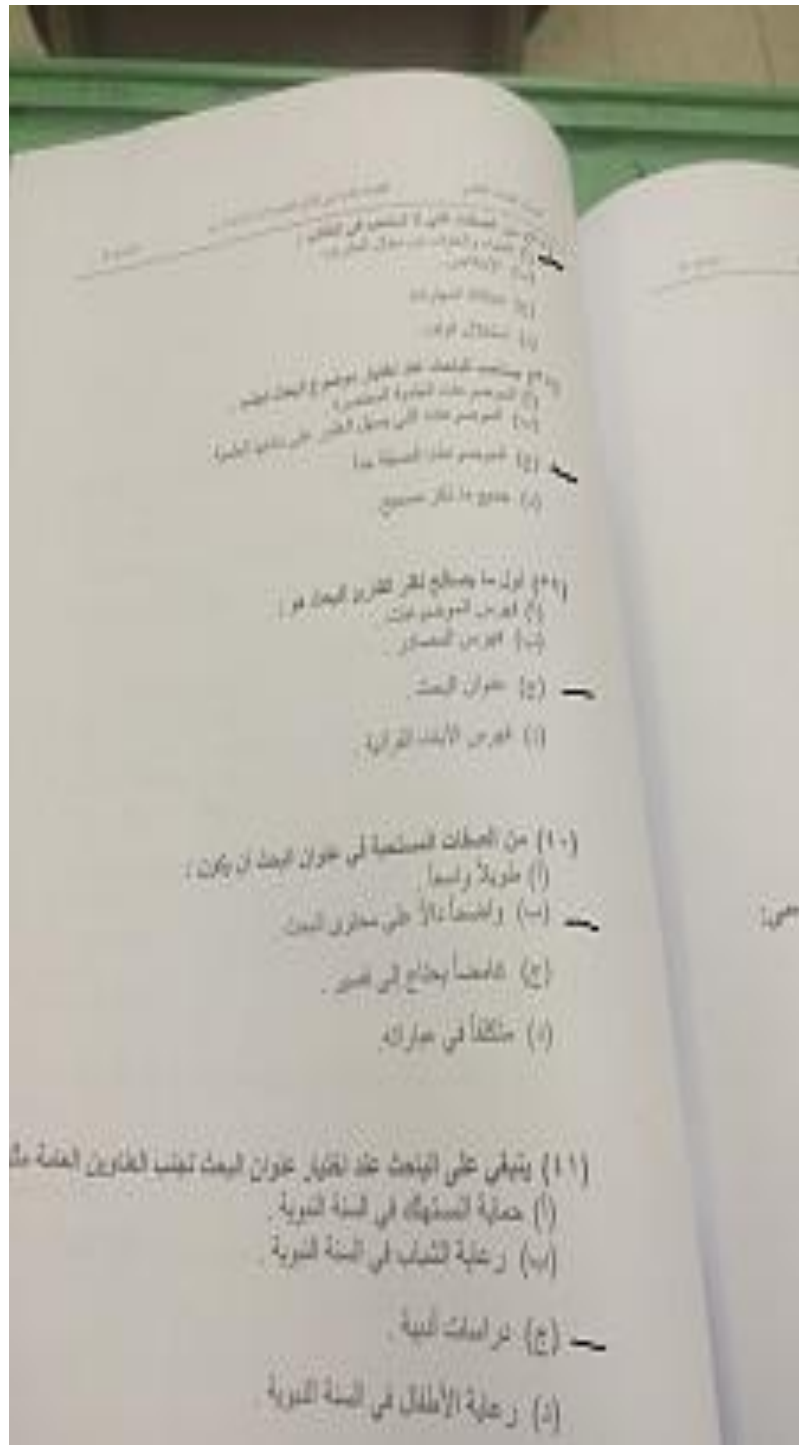 (أ) الحياء والخوف من سؤال
(ب) الإخلاص.
(ج) امتلاك المهارات
(د) استغلال الوقت.
يستحب للباحث عند اختيار موضوع البحث تجنب
(أ) الموضوعات
(ب) الموضوعات التي يسهل العثور على مادتها العلمية.
(ج) الموضوعات الضيقة جداً
(د) جميع ما ذكر صحيح.
(٣٩) أول ما يصافح نظر القارئ البحث هو :
(أ) فهرس الموضوعات.
(ب) فهرس المصادر .
(ج) عنوان البحث .
(د) فهرس الآيات القرآنية .
(٤٠) من الصفات المستحبة في عنوان البحث أن يكون :
(أ) طويلاً واسعاً .
(ب) واضحاً دالاً على محتوى البحث .
(ج) غامضاً يحتاج إلى تفسير .
(د) متكلفاً في عباراته.
(٤١) ينبغي على الباحث عند اختيار عنوان البحث تجنب العناوين العامة
(أ) حماية المستهلك في السنة النبوية .
(ب) رعاية الشباب في السنة النبوية .
(ج) دراسات أدبية .
(د) رعاية الأطفال في السنة النبوية .